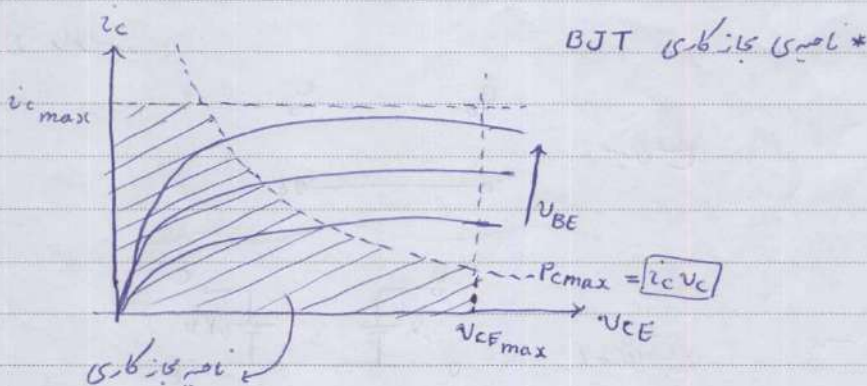 * ناحیه‌ی مجاز کاری BJT
ic
ic max
υBE
Pcmax = ic υc
υCE max
υCE
ناحیه مجاز کاری